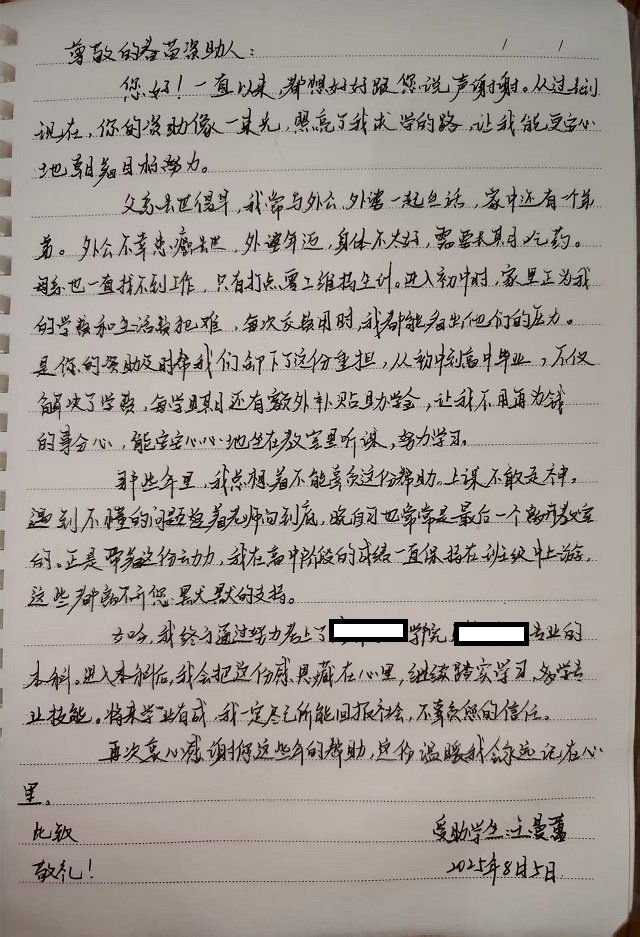 尊敬的春苗资助人：
您好！一直以来，都想好好跟您说声谢谢。从过去到
现在，你的资助像一束光，照亮了我求学的路，让我能更安心
地朝着目标努力。
父亲去世得早，我常与外公、外婆一起生活，家中还有一个弟
弟。外公不幸患癌去世，外婆年迈，身体不太好，需要长期吃药。
母亲也一直找不到工作，只有打点零工维持生计。进入初中时，家里正为我
的学费和生活费犯难，每次交费用时，我都能看出他们的压力。
是你的资助及时帮我们卸下了这份重担，从初中到高中毕业，不仅
解决了学费，每学期还有额外补贴助学金，让我不用再为钱
的事分心，能安安心心地坐在教室里听课，努力学习。
那些年里，我总想着不能辜负这份帮助。上课不敢走神，
遇到不懂的问题追着老师问到底，晚自习也常常是最后一个离开教室
的。正是带着这份动力，我在高中阶段的成绩一直保持在班级中上游，
这些都离不开您默默的支持。
如今，我终于通过努力考上了 学院 专业的
本科。进入本科后，我会把这份感恩藏在心里，继续踏实学习，多学专
业技能。将来学业有成，我一定尽己所能回报社会，不辜负您的信任。
再次衷心感谢你这些年的帮助，这份温暖我会永远记在心
里。
此致 受助学生：王曼
敬礼！ 2025年8月5日